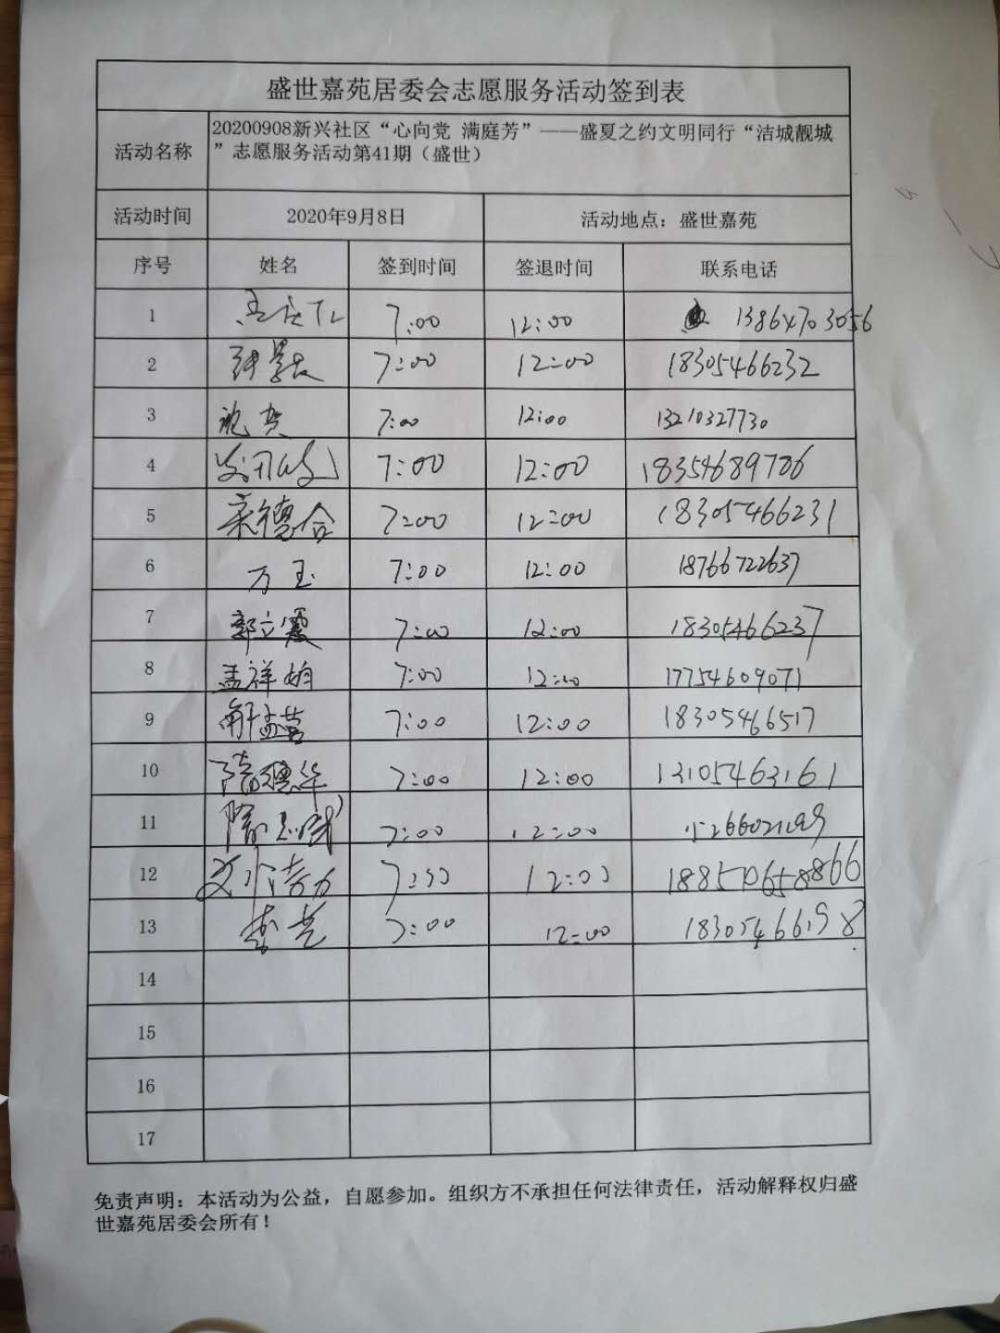 盛世嘉苑居委会志愿服务活动签到表
活动名称 20200908新兴社区“心向党 满庭芳”——盛夏之约文明同行“洁城靓城
”志愿服务活动第41期（盛世）
活动时间 2020年9月8日 活动地点：盛世嘉苑
序号 姓名 签到时间 签退时间 联系电话
1 7:00 12:00 13864703056
2 7:00 12:00 18305466232
3 7:00 12:00 13210327730
4 7:00 12:00 18354689786
5 7:00 12:00 18305466231
6 万玉 7:00 12:00 18766722637
7 郭立霞 7:00 12:00 18305466237
8 孟祥娟 7:00 12:00 17754609071
9 解孟营 7:00 12:00 18305466517
10 隋德华 7:00 12:00 13105463161
11 7:00 12:00
12 7:00 12:00
13 李芝 7:00 12:00 18305466198
14
15
16
17
免责声明：本活动为公益，自愿参加。组织方不承担任何法律责任，活动解释权归盛
世嘉苑居委会所有！